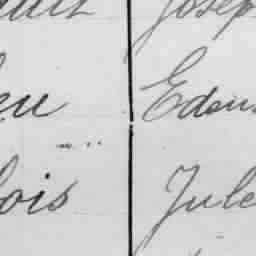 Josep
eu Edou
ois Jule